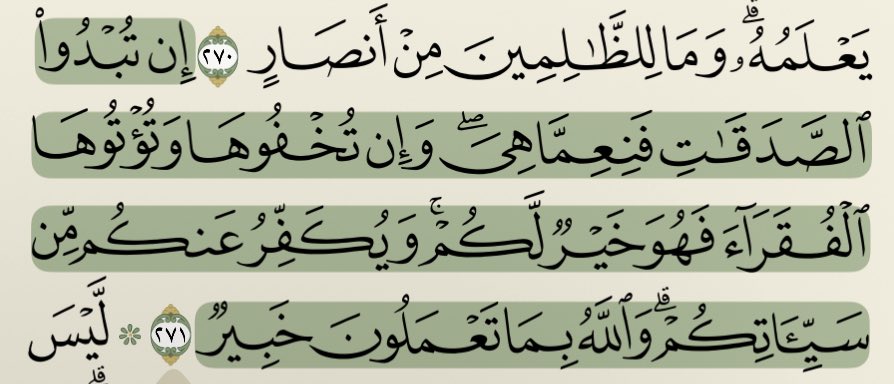 يَعْلَمُهُۥ ۗ وَمَا لِلظَّـٰلِمِينَ مِنْ أَنصَارٍ ٢٧٠ إِن تُبْدُوا۟
ٱلصَّدَقَـٰتِ فَنِعِمَّا هِىَ ۖ وَإِن تُخْفُوهَا وَتُؤْتُوهَا
ٱلْفُقَرَآءَ فَهُوَ خَيْرٌ لَّكُمْ ۚ وَيُكَفِّرُ عَنكُم مِّن
سَيِّـَٔاتِكُمْ ۗ وَٱللَّهُ بِمَا تَعْمَلُونَ خَبِيرٌ ٢٧١ ۞ لَّيْسَ